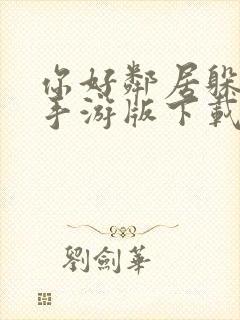 你好鄰居躲
手游版下載
劉劍華